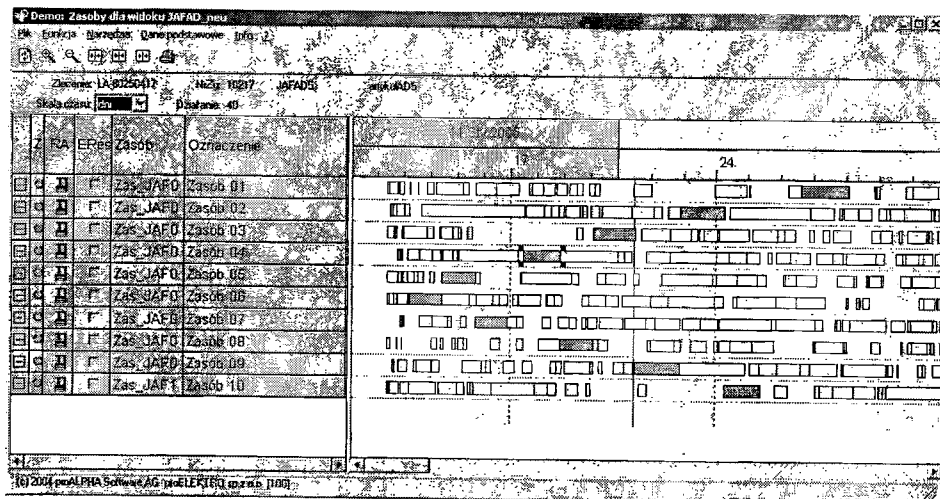 Demo: Zasoby dla widoku JAFAD_neu
Plik Funkcja Narzędzia Dane podstawowe Info ?
Zlecenie: LA-80250417 NrZg: 10217 JAFAD5
Skala czasu: Działanie: 40
Z RA ERes Zasób Oznaczenie
17. 24.
Zas_JAF0 Zasób 01
Zas_JAF0 Zasób 02
Zas_JAF0 Zasób 03
Zas_JAF0 Zasób 04
Zas_JAF0 Zasób 05
Zas_JAF0 Zasób 06
Zas_JAF0 Zasób 07
Zas_JAF0 Zasób 08
Zas_JAF0 Zasób 09
Zas_JAF1 Zasób 10
(c) 2004 proALPHA Software AG, proELEKTRO sp.z o.o. [100]